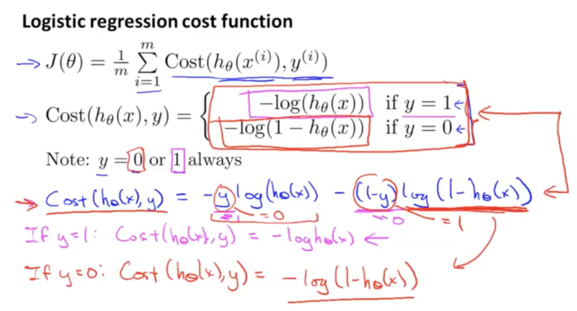 Logistic regression cost function
→ J(θ) = 1/m ∑_{i=1}^{m} Cost(h_θ(x^{(i)}), y^{(i)})
→ Cost(h_θ(x), y) = { −log(h_θ(x)) if y = 1 ←
−log(1 − h_θ(x)) if y = 0 ←
Note: y = 0 or 1 always
→ Cost(h_θ(x), y) = −y log(h_θ(x)) − (1−y) log(1−h_θ(x))
=1 =0 =0 =1
If y=1: Cost(h_θ(x), y) = −log h_θ(x) ←
If y=0: Cost(h_θ(x), y) = −log(1−h_θ(x))